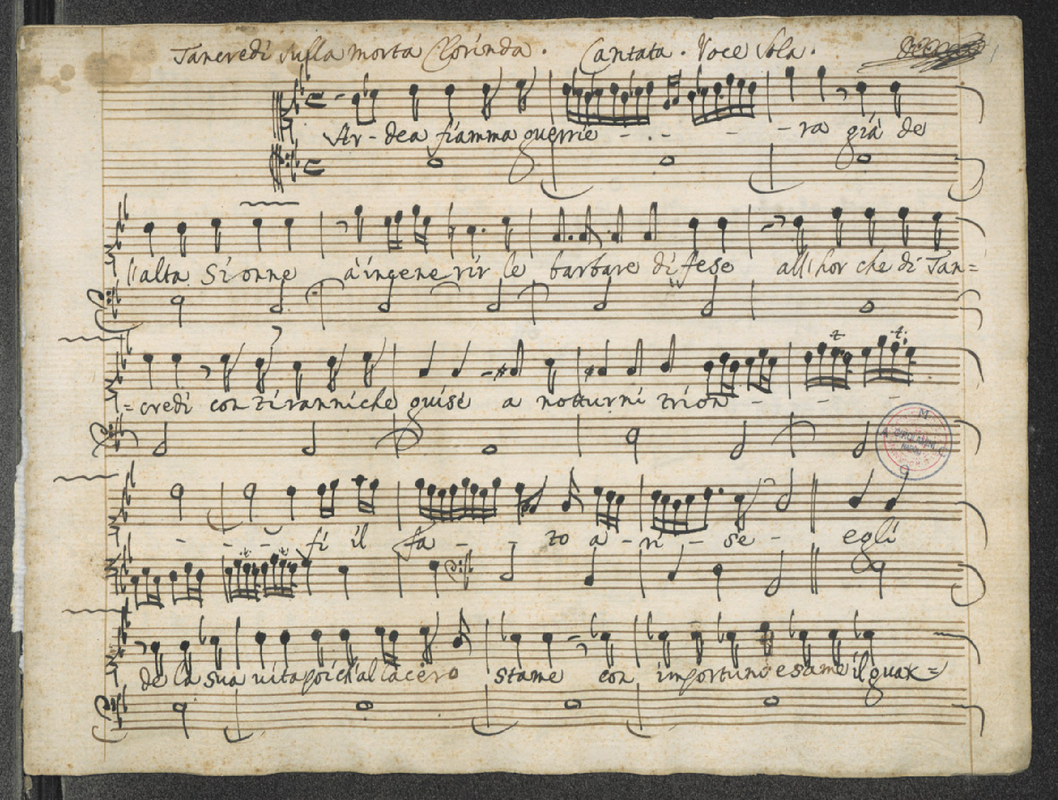 Tancredi sulla morta Clorinda. Cantata. Voce Sola.
Ar-dea fiamma guerrie - - - - - ra già de
l'alta Sionne a'incenerir le barbare difese all'hor che di Tan=
=credi con tiranniche guise a notturni trion - - -
- - - fi il fa - - to a - ri - se - egli
de la sua vita poich'al lacero stame con importuno esame il guar=